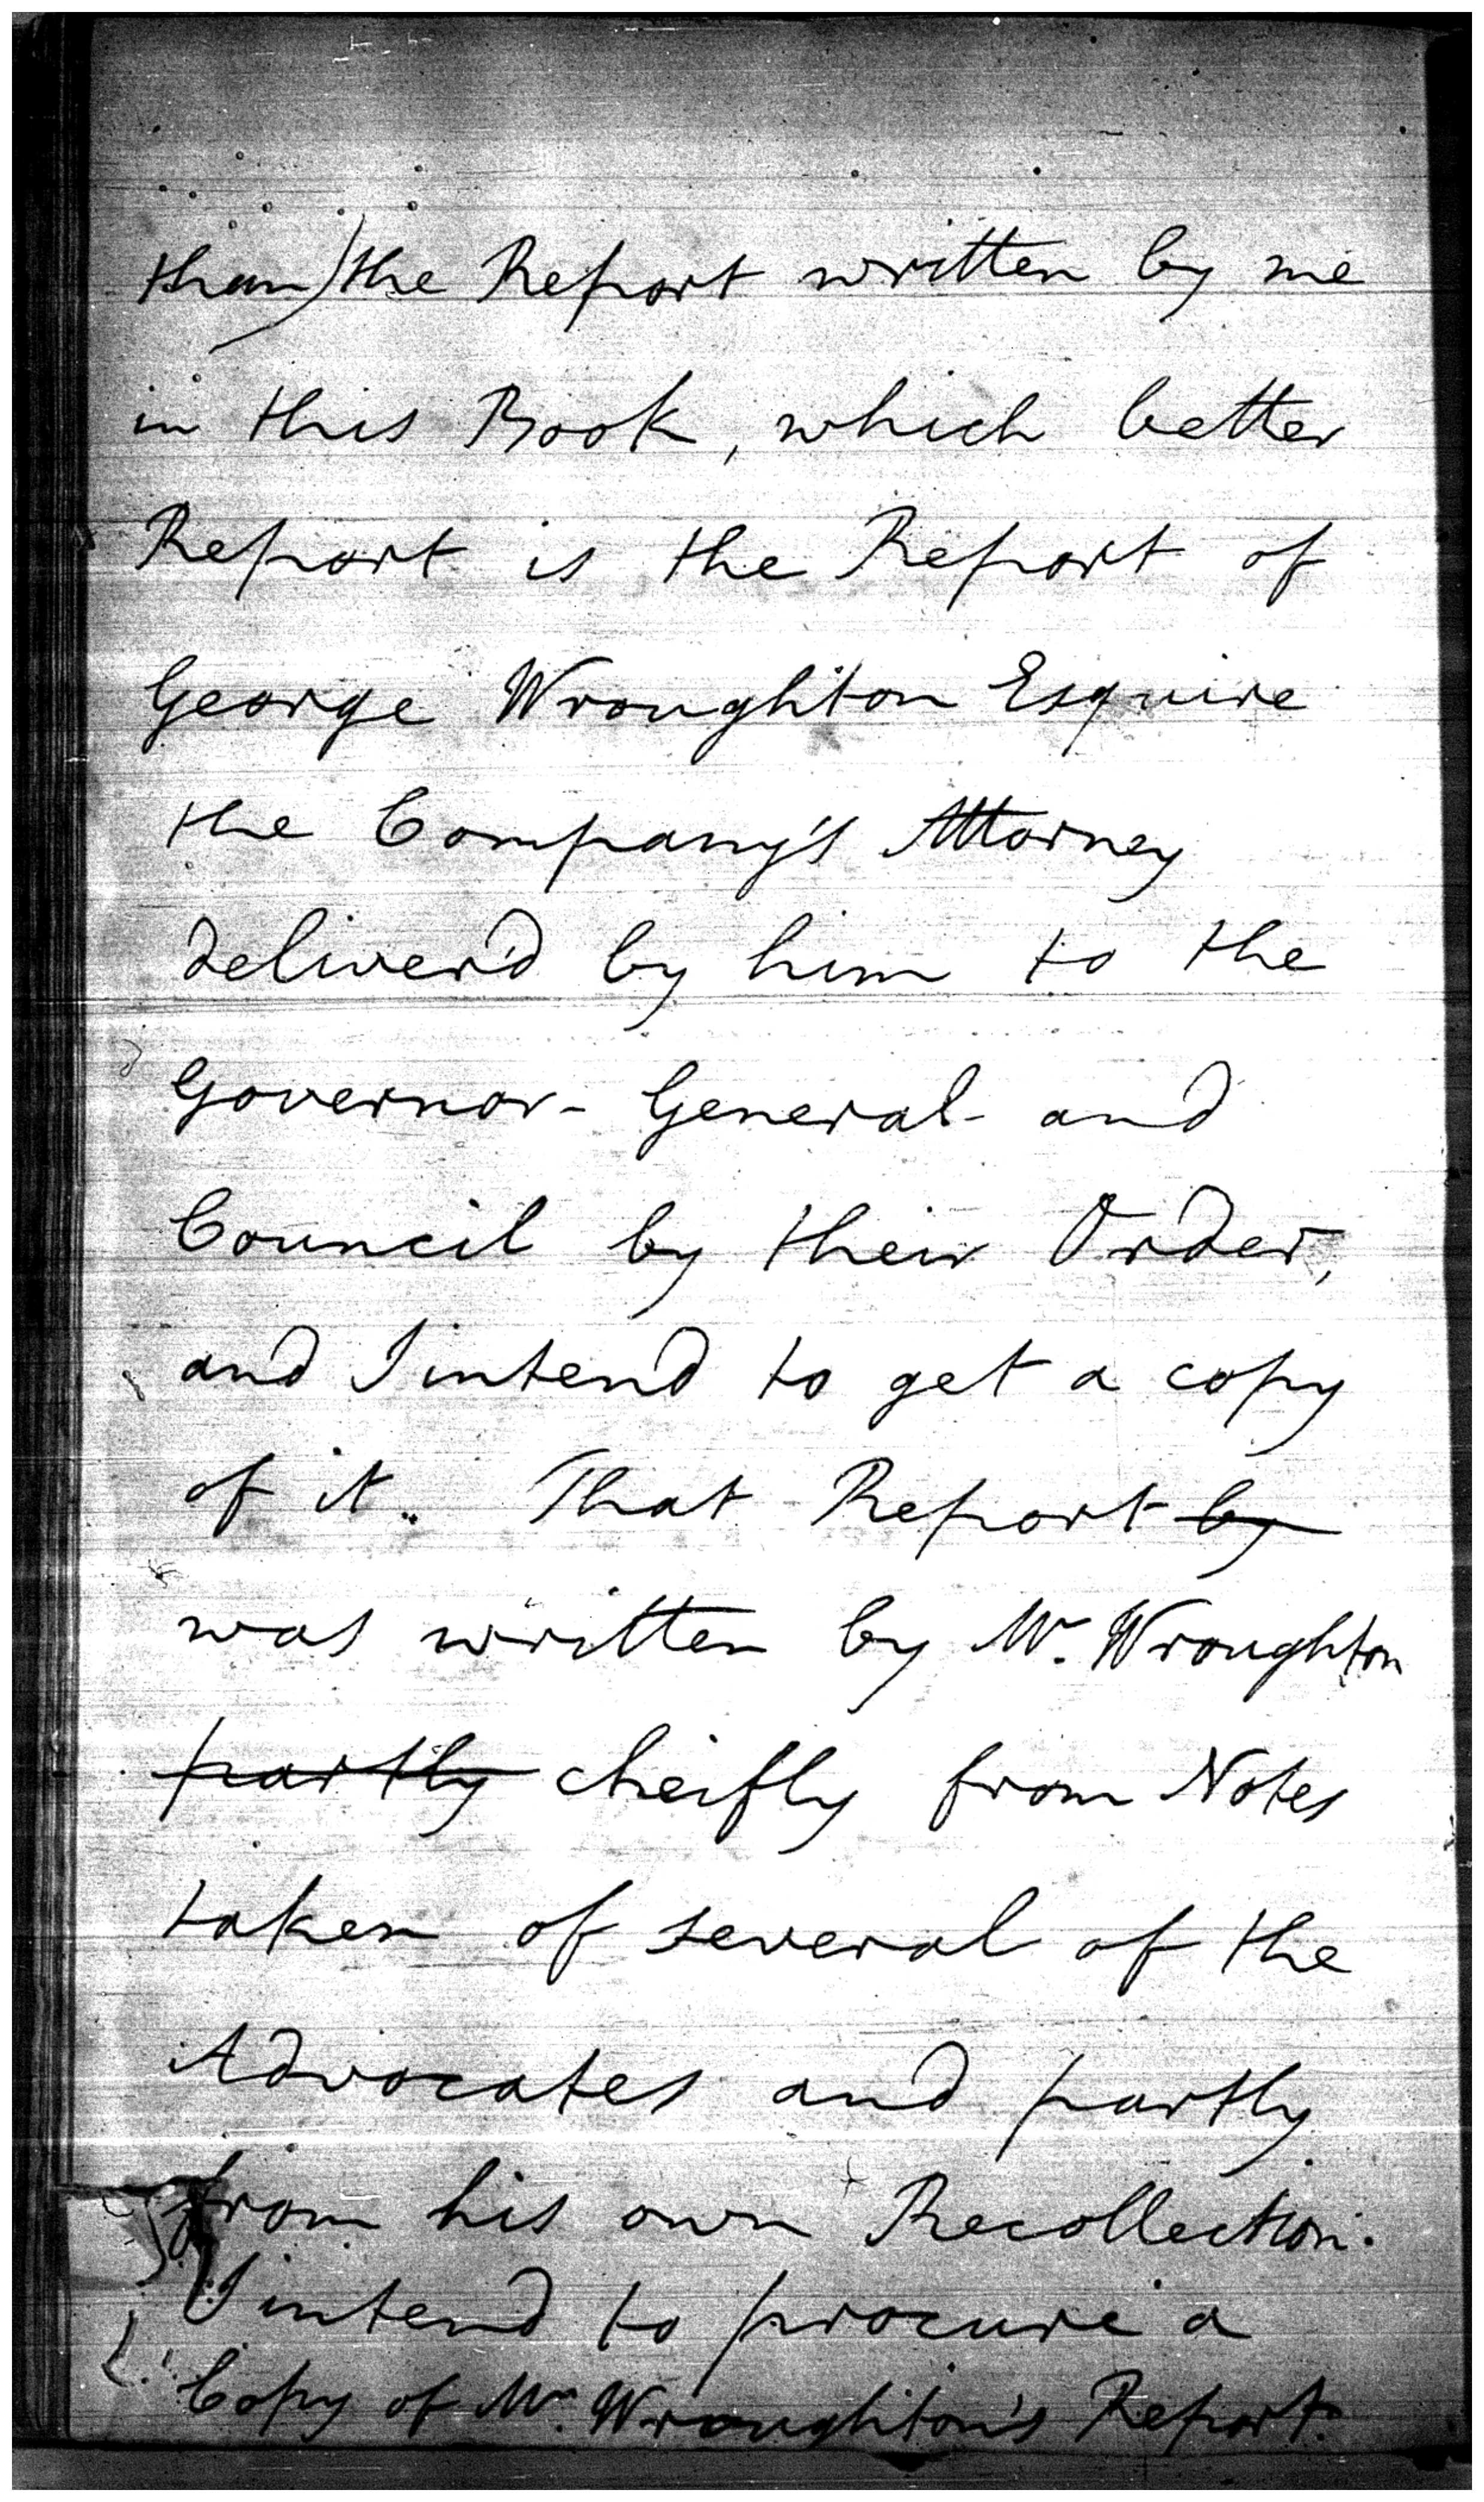 than) the Report written by me
in this Book, which better
Report is the Report of
George Wroughton Esquire
the Company's Attorney
deliver'd by him to the
Governor-General and
Council by their Order,
and I intend to get a copy
of it. That Report by
was written by Mr. Wroughton
partly cheifly from Notes
taken of several of the
Advocates and partly
from his own Recollection.
I intend to procure a
Copy of Mr. Wroughton's Report.